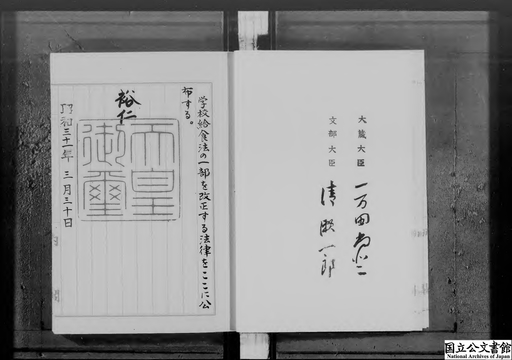 大蔵大臣 一万田尚登
文部大臣 清瀬一郎
学校給食法の一部を改正する法律をここに公
布する。
裕仁
天皇
御璽
昭和三十一年三月三十日
国立公文書館
National Archives of Japan